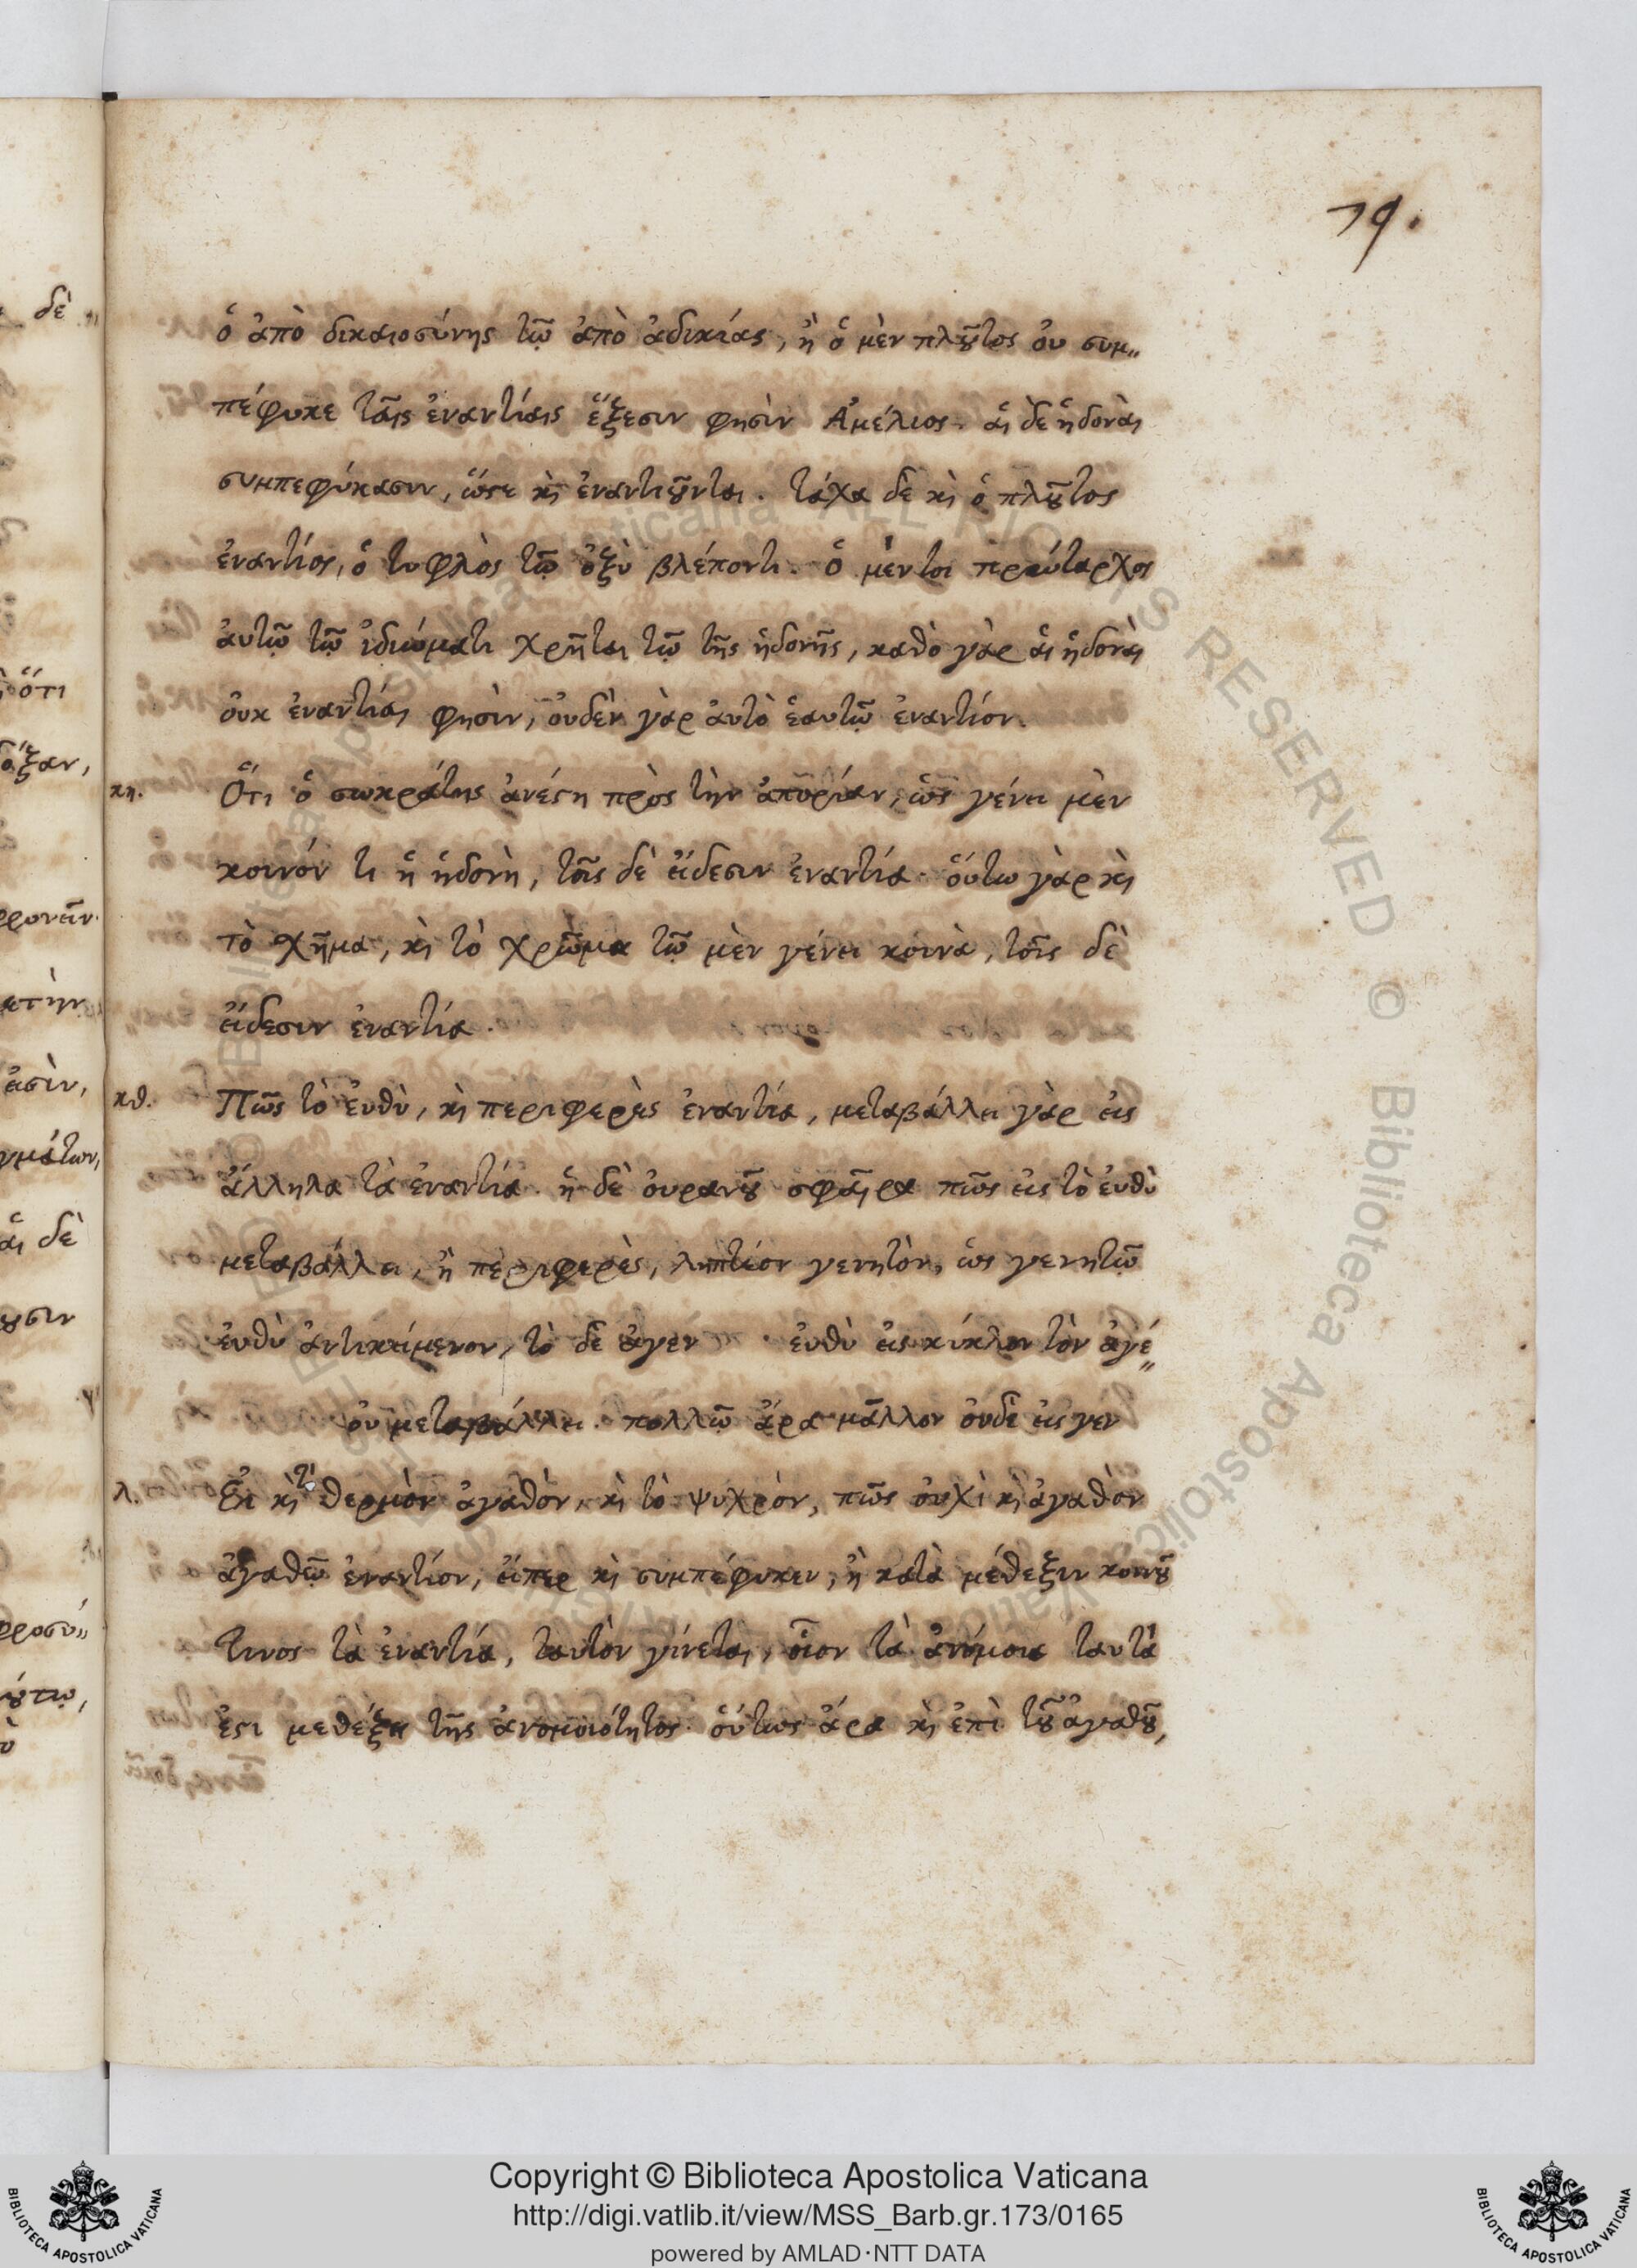 79.
ὁ ἀπὸ δικαιοσύνης τῷ ἀπὸ ἀδικίας, ἢ ὁ μὲν πλοῦτος οὐ συμ
πέφυκε ταῖς ἐναντίαις ἕξεσιν φησὶν Ἀμέλιος. αἱ δὲ ἡδοναὶ
συμπεφύκασιν, ὥστε καὶ ἐναντιοῦνται. τάχα δὲ καὶ ὁ πλοῦτος
ἐναντίος, ὁ τυφλὸς τῷ ὀξὺ βλέποντι. ὁ μέντοι πρώταρχος
αὐτῷ τῷ ἰδιώματι χρῆται τῷ τῆς ἡδονῆς, καθὸ γὰρ αἱ ἡδοναὶ
οὐκ ἐναντίαι φησὶν, οὐδὲν γὰρ αὐτὸ ἑαυτῷ ἐναντίον.
κη. Ὅτι ὁ σωκράτης ἀνέστη πρὸς τὴν ἀπορίαν, ὡς γένει μὲν
κοινόν τι ἡ ἡδονὴ, τοῖς δὲ εἴδεσιν ἐναντία. οὕτω γὰρ καὶ
τὸ χῆμα, καὶ τὸ χρῶμα τῷ μὲν γένει κοινὰ, τοῖς δὲ
εἴδεσιν ἐναντία.
κθ. Πῶς τὸ εὐθὺ, καὶ περιφερὲς ἐναντία, μεταβάλλει γὰρ εἰς
ἄλληλα τὰ ἐναντία. ἡ δὲ οὐρανοῦ σφαῖρα πῶς εἰς τὸ εὐθὺ
μεταβάλλει, ἢ περιφερὲς, ληπτέον γενητὸν, ὡς γενητῷ
εὐθὺ ἀντικείμενον, τὸ δὲ ἀγεν εὐθὺ εἰς κύκλον τὸν ἀγέ
οὐ μεταβάλλει. πολλῷ ἄρα μᾶλλον οὐδὲ εἰς γεν
λ. Εἰ καὶ τὸ θερμὸν ἀγαθὸν, καὶ τὸ ψυχρὸν, πῶς οὐχὶ καὶ ἀγαθὸν
ἀγαθῷ ἐναντίον, εἴπερ καὶ συμπέφυκεν, ἢ κατὰ μέθεξιν κοινοῦ
τινος τὰ ἐναντία, ταυτὸν γίνεται, οἷον τὰ ἀνόμοια ταυτά
ἐστι μεθέξει τῆς ἀνομοιότητος. οὕτως ἄρα καὶ ἐπὶ τοῦ ἀγαθοῦ,
Copyright © Biblioteca Apostolica Vaticana
http://digi.vatlib.it/view/MSS_Barb.gr.173/0165
powered by AMLAD·NTT DATA
BIBLIOTECA APOSTOLICA VATICANA
BIBLIOTECA APOSTOLICA VATICANA